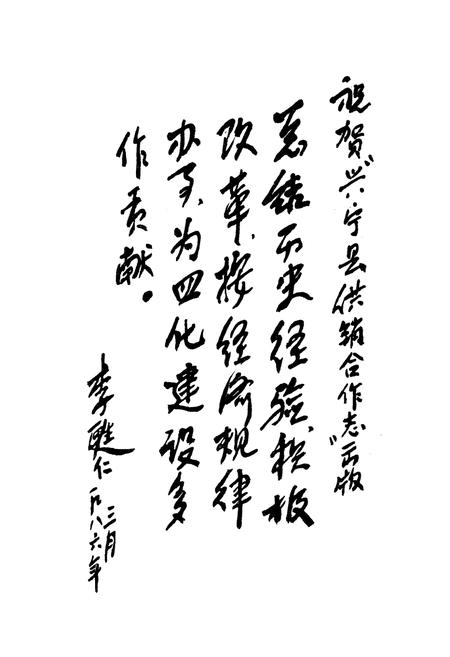 祝贺“兴宁县供销合作志”出版
总结历史经验,积极
改革,按经济规律
办事,为四化建设多
作贡献。
李
仁
一九八六年
三月